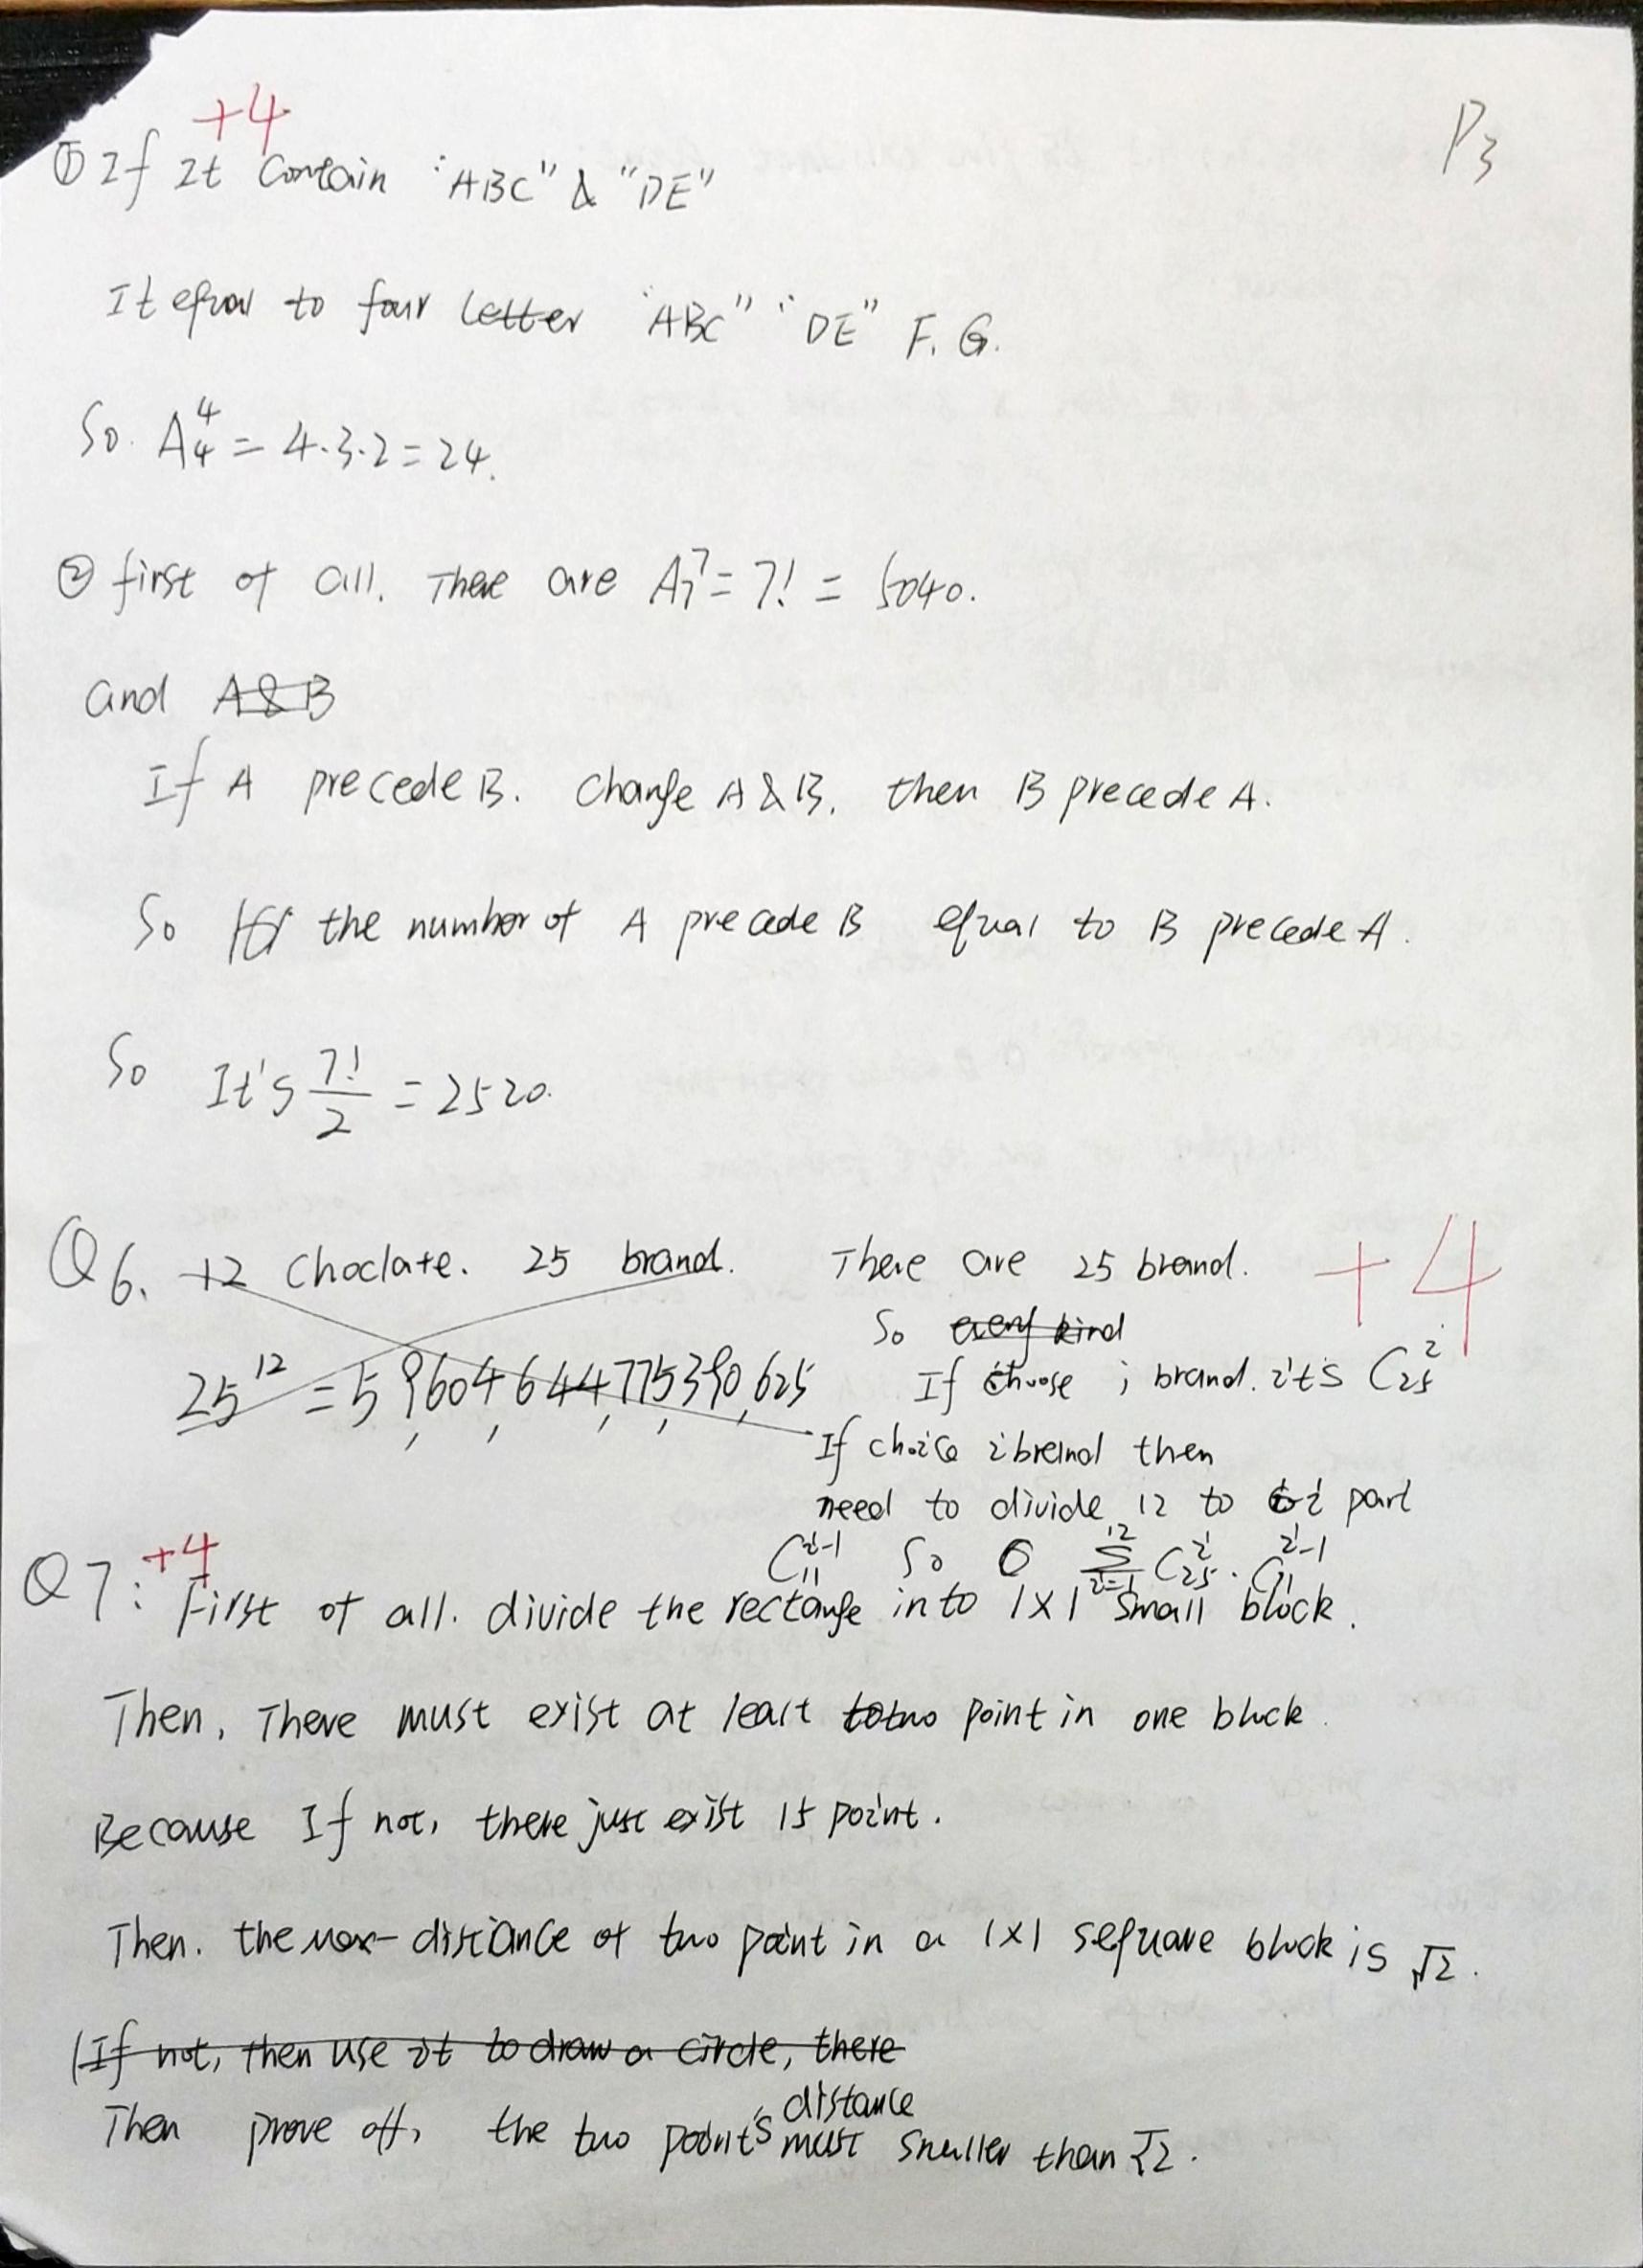 +4
P3
① If It Contain "ABC" & "DE"
It equal to four letter "ABC" "DE" F. G.
So. A₄⁴ = 4·3·2 = 24.
② first of all. There are A₇⁷ = 7! = 5040.
and A&B
If A precede B. Change A & B. then B precede A.
So the number of A precede B equal to B precede A.
So It's 7!/2 = 2520.
Q6. 12 Choclate. 25 brand. There are 25 brand. +4
So every kind
25¹² = 59,604,644,775,390,625 If choose i brand. it's C₂₅ⁱ
If choice i brand then
need to divide 12 to i part
C₁₁ⁱ⁻¹ So ∑ᵢ₌₁¹² C₂₅ⁱ · C₁₁ⁱ⁻¹
Q7: +4 First of all. divide the rectange into 1×1 small block.
Then, There must exist at least two point in one block.
Because If not, there just exist 15 point.
Then. the max-distance of two point in a 1×1 sequare block is √2.
(If not, then use it to draw a circle, there
Then prove off, the two point's distance must smaller than √2.